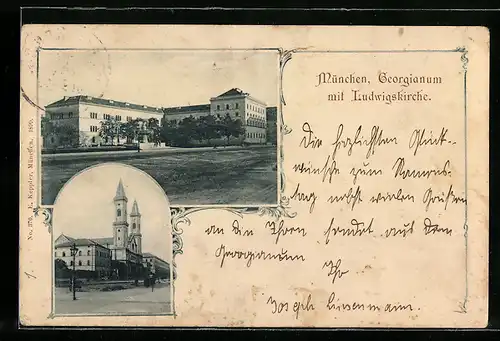 München, Georgianum
mit Ludwigskirche.
Die herzlichsten Glück-
wünsche zum Namens-
tag nebst vielen Grüßen
an die Ihren sendet aus dem
Georgianum
Ihr
Joseph
No. 276. K. Keppler, München, 1899.